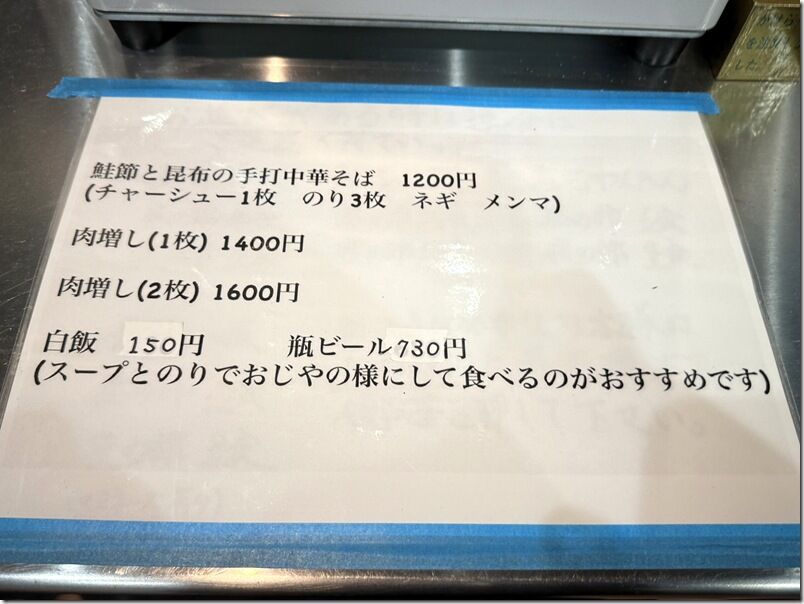 鮭節と昆布の手打中華そば　1200円
(チャーシュー1枚　のり3枚　ネギ　メンマ)
肉増し(1枚) 1400円
肉増し(2枚) 1600円
白飯　150円　　　瓶ビール730円
(スープとのりでおじやの様にして食べるのがおすすめです)